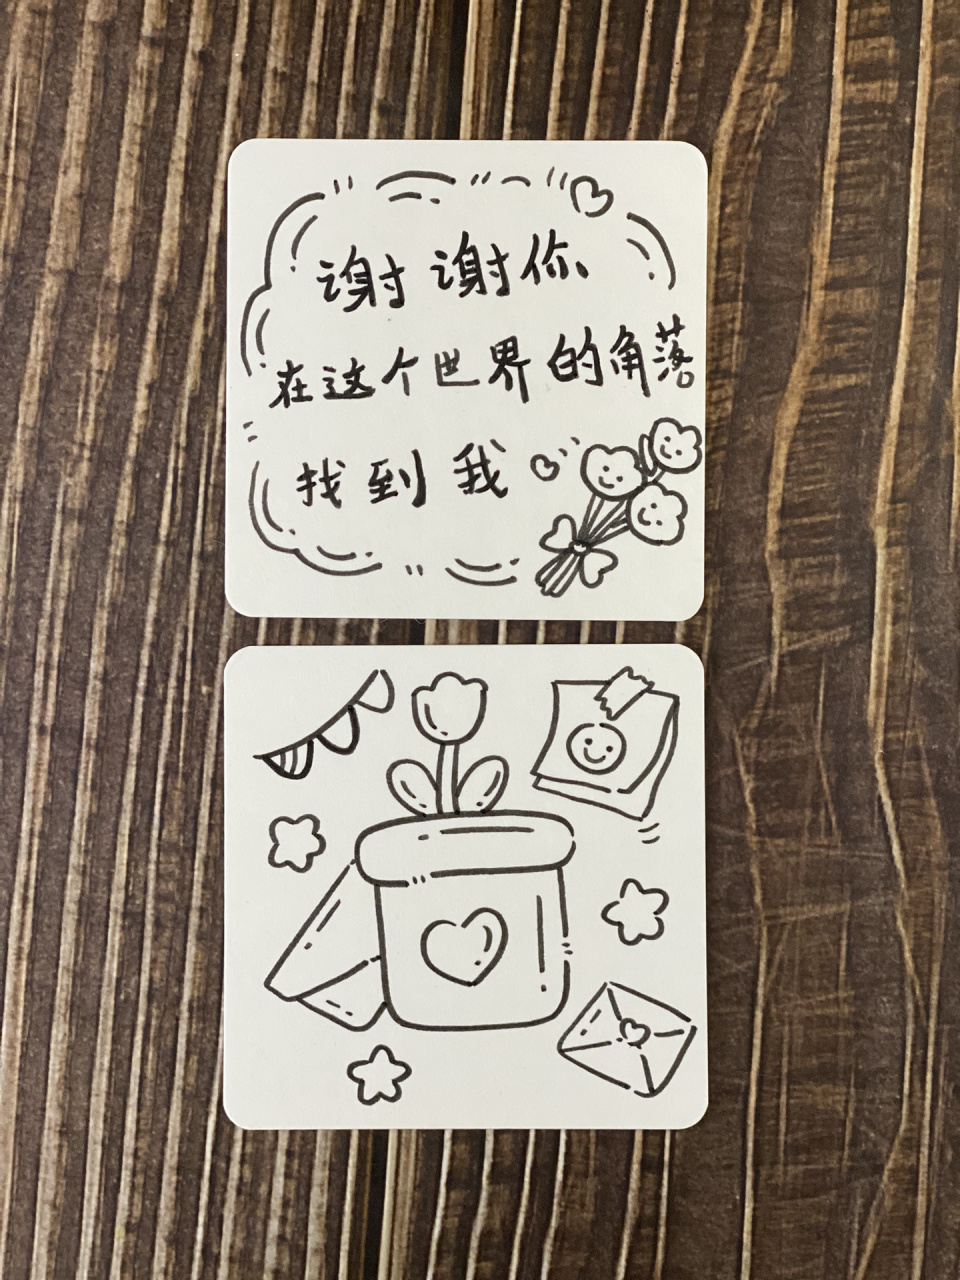 谢谢你
在这个世界的角落
找到我